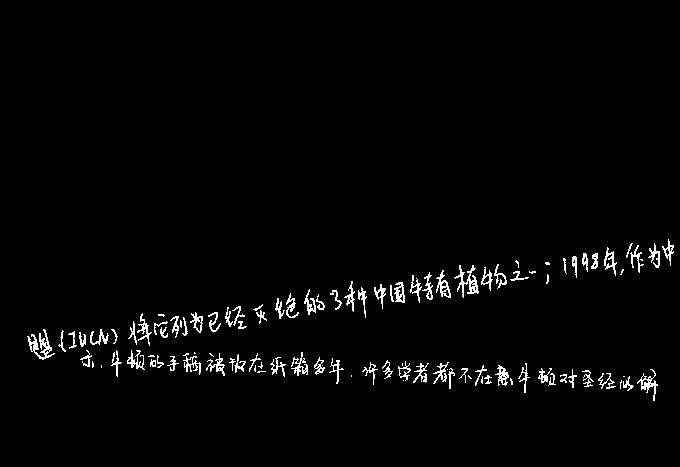 盟(IUCN)将它列为已经灭绝的3种中国特有植物之一；1998年,作为中
示,牛顿的手稿被放在纸箱多年,许多学者都不在意牛顿对圣经的解